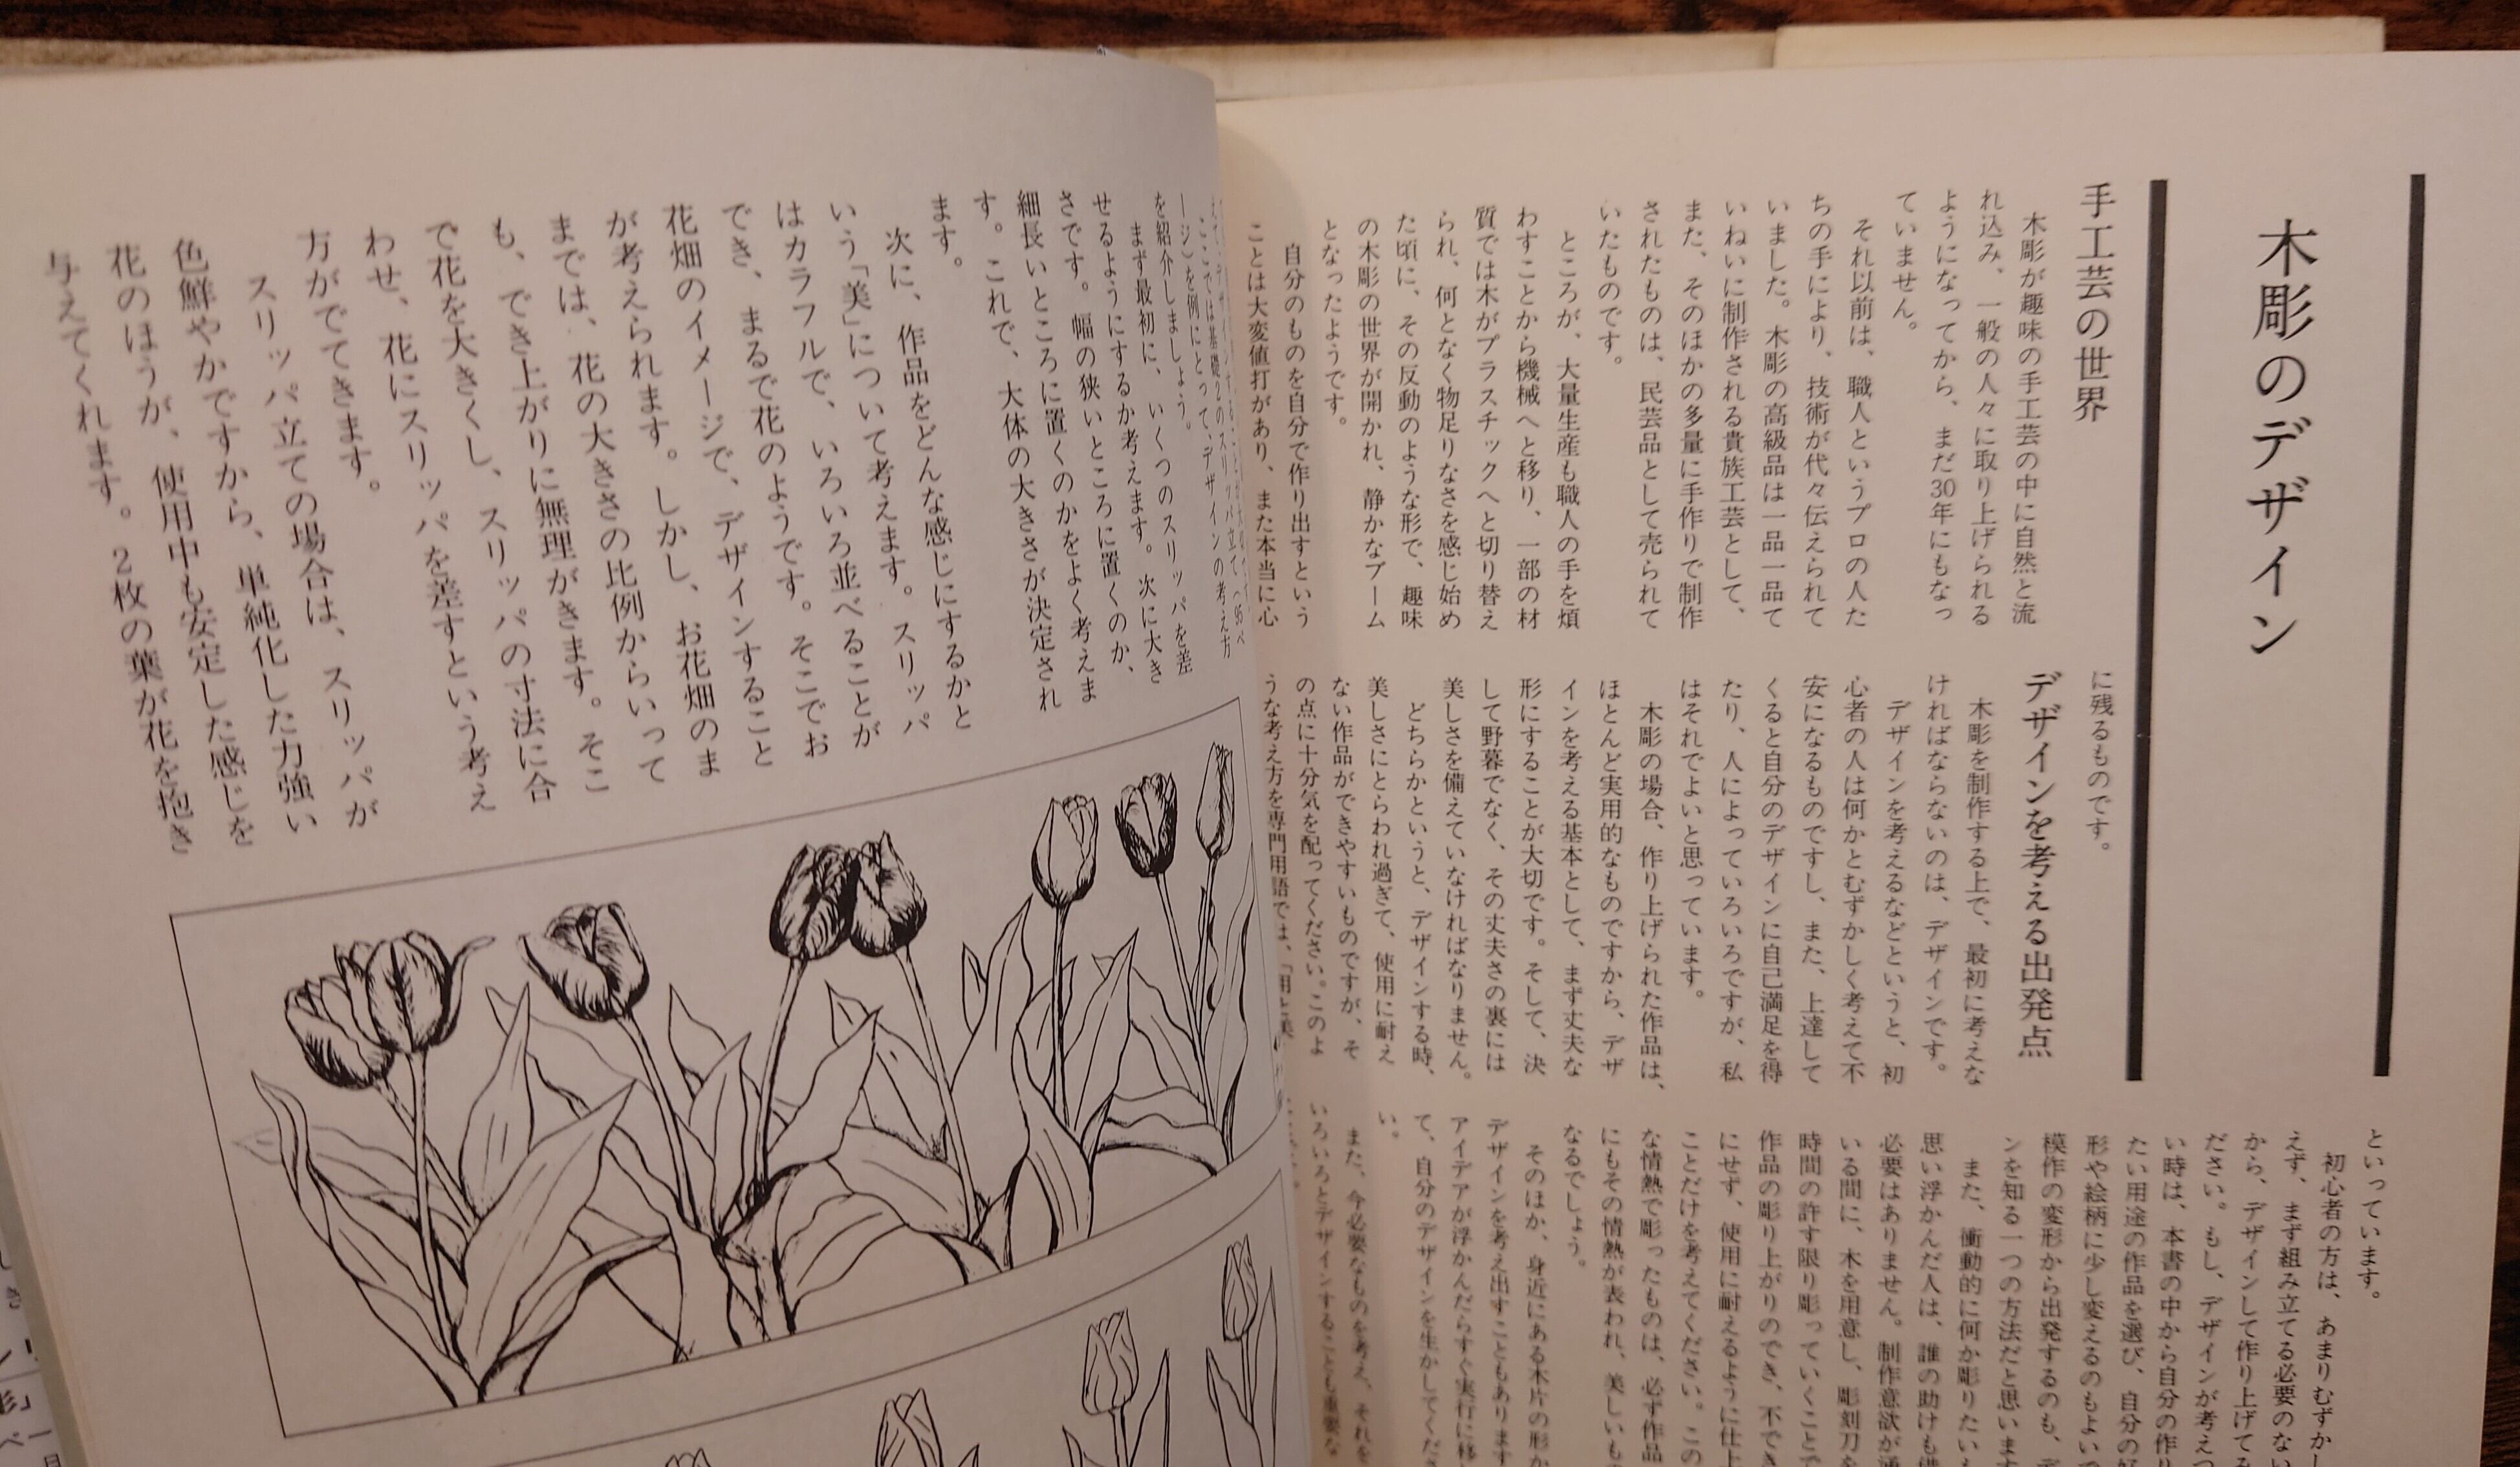 木彫のデザイン
手工芸の世界
木彫が趣味の手工芸の中に自然と流
れ込み、一般の人々に取り上げられる
ようになってから、まだ30年にもなっ
ていません。
それ以前は、職人というプロの人た
ちの手により、技術が代々伝えられて
いました。木彫の高級品は一品一品て
いねいに制作される貴族工芸として、
また、そのほかの多量に手作りで制作
されたものは、民芸品として売られて
いたものです。
ところが、大量生産も職人の手を煩
わすことから機械へと移り、一部の材
質では木がプラスチックへと切り替え
られ、何となく物足りなさを感じ始め
た頃に、その反動のような形で、趣味
の木彫の世界が開かれ、静かなブーム
となったようです。
自分のものを自分で作り出すという
ことは大変値打があり、また本当に心
に残るものです。
デザインを考える出発点
木彫を制作する上で、最初に考えな
ければならないのは、デザインです。
デザインを考えるなどというと、初
心者の人は何かとむずかしく考えて不
安になるものですし、また、上達して
くると自分のデザインに自己満足を得
たり、人によっていろいろですが、私
はそれでよいと思っています。
木彫の場合、作り上げられた作品は、
ほとんど実用的なものですから、デザ
インを考える基本として、まず丈夫な
形にすることが大切です。そして、決
して野暮でなく、その丈夫さの裏には
美しさを備えていなければなりません。
どちらかというと、デザインする時、
美しさにとらわれ過ぎて、使用に耐え
ない作品ができやすいものですが、そ
の点に十分気を配ってください。このよ
うな考え方を専門用語では、「用と美
といっています。
初心者の方は、あまりむずかし
えず、まず組み立てる必要のない
から、デザインして作り上げてみ
ださい。もし、デザインが考えつ
い時は、本書の中から自分の作り
たい用途の作品を選び、自分の好
形や絵柄に少し変えるのもよいで
模作の変形から出発するのも、デ
ンを知る一つの方法だと思います
また、衝動的に何か彫りたいも
思い浮かんだ人は、誰の助けも借
必要はありません。制作意欲が湧
いる間に、木を用意し、彫刻刀を
時間の許す限り彫っていくことで
作品の彫り上がりのでき、不でき
にせず、使用に耐えるように仕上
ことだけを考えてください。この
な情熱で彫ったものは、必ず作品
にもその情熱が表われ、美しいもの
なるでしょう。
そのほか、身近にある木片の形か
デザインを考え出すこともあります
アイデアが浮かんだらすぐ実行に移
て、自分のデザインを生かしてくださ
い。
また、今必要なものを考え、それを
いろいろとデザインすることも重要な
ここでは基礎2のスリッパ立て（95ペ
ージ）を例にとって、デザインの考え方
を紹介しましょう。
まず最初に、いくつのスリッパを差
せるようにするか考えます。次に大き
さです。幅の狭いところに置くのか、
細長いところに置くのかをよく考えま
す。これで、大体の大きさが決定され
ます。
次に、作品をどんな感じにするかと
いう「美」について考えます。スリッパ
はカラフルで、いろいろ並べることが
でき、まるで花のようです。そこでお
花畑のイメージで、デザインすること
が考えられます。しかし、お花畑のま
までは、花の大きさの比例からいって
も、でき上がりに無理がきます。そこ
で花を大きくし、スリッパの寸法に合
わせ、花にスリッパを差すという考え
方がでてきます。
スリッパ立ての場合は、スリッパが
色鮮やかですから、単純化した力強い
花のほうが、使用中も安定した感じを
与えてくれます。2枚の葉が花を抱き